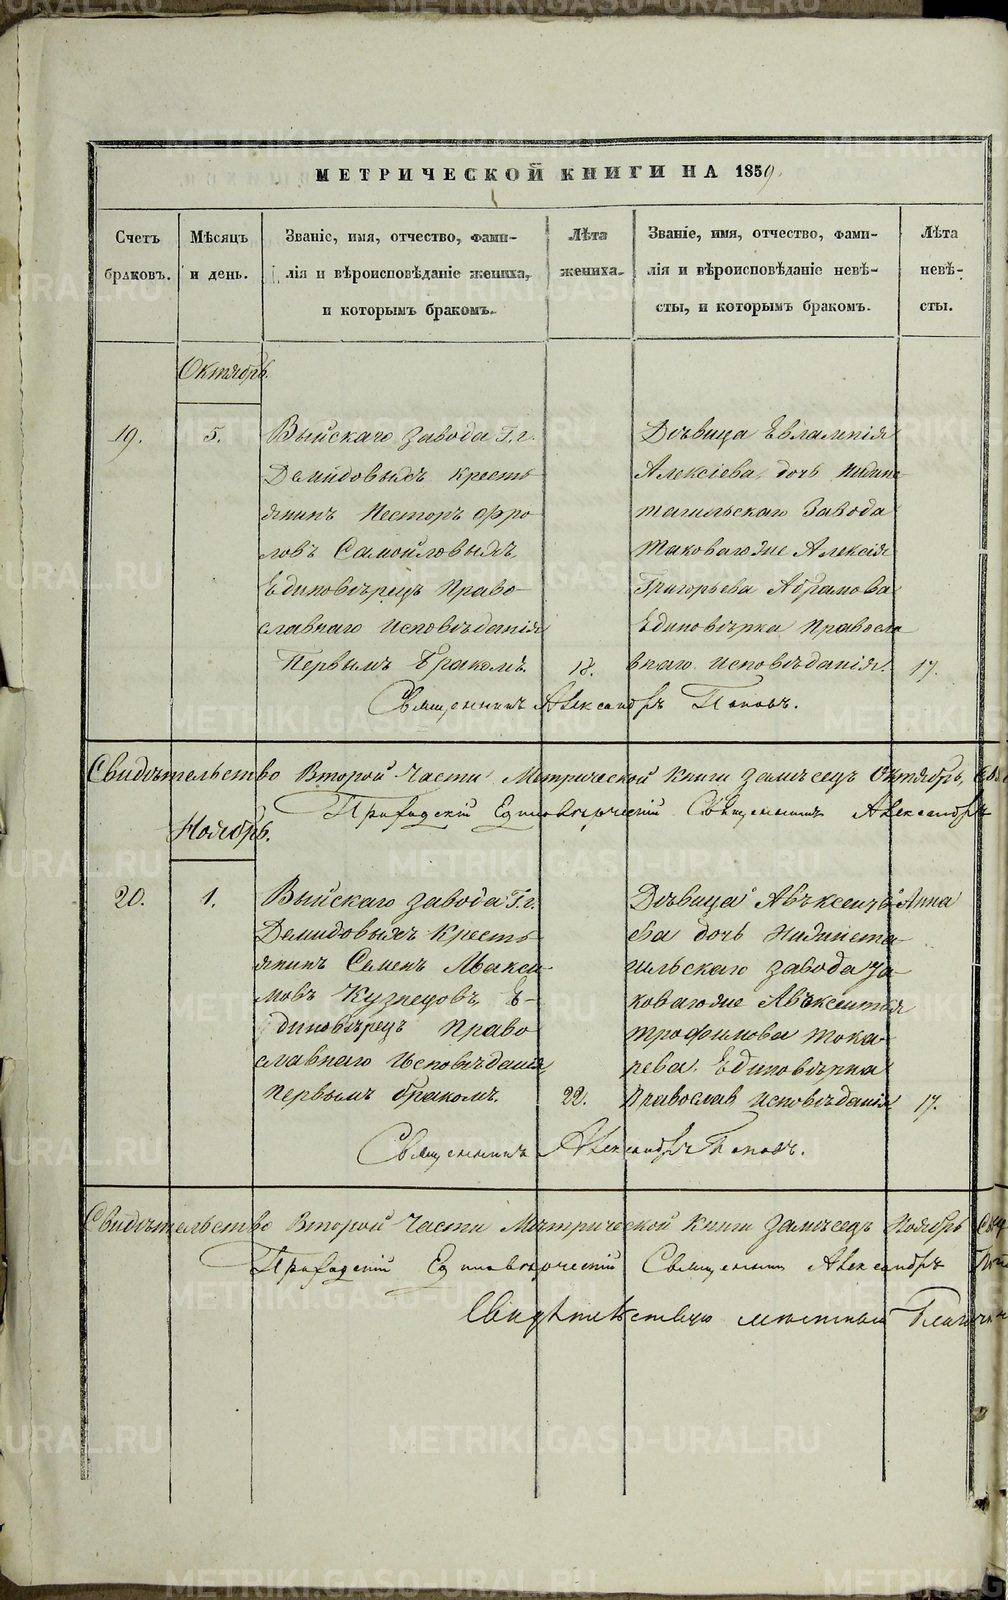 МЕТРИЧЕСКОЙ КНИГИ НА 1859.
Счетъ браковъ.
Мѣсяцъ и день.
Званіе, имя, отчество, фами-
лія и вѣроисповѣданіе жениха,
и которымъ бракомъ.
Лѣта жениха.
Званіе, имя, отчество, фами-
лія и вѣроисповѣданіе невѣ-
сты, и которымъ бракомъ.
Лѣта невѣ-
сты.
Октябрь.
19.
5.
Выйскаго завода Г.г.
Демидовыхъ кресть
янинъ Несторъ Фро
ловъ Самойловыхъ
Единовѣрецъ Право-
славнаго исповѣданія
Первымъ бракомъ.
18.
Дѣвица Евлампія
Алексіева, дочь Нижне
тагильскаго Завода
таковагоже Алексія
Григорьева Абрамова
Единовѣрка Правосла
внаго исповѣданія.
17.
Священникъ Александръ Поповъ.
Свидѣтельство Второй Части Метрической Книги замѣсецъ Октябрь,
Приходскій Единовѣрческій Священникъ Александръ
Ноябрь.
20.
1.
Выйскаго завода Г.г.
Демидовыхъ Кресть
янинъ Семенъ Макси
мовъ Кузнецовъ, Е-
диновѣрецъ Право
славнаго Исповѣданія
первымъ бракомъ.
22.
Дѣвица Анна
ва дочь Нижнета
гильскаго завода та
ковагоже Авксентія
Трофимова Тока
рева. Единовѣрка
Православ исповѣданія
17.
Священникъ Александръ Поповъ.
Свидѣтельство Второй Части Метрической Книги замѣсецъ Ноябрь
Приходскій Единовѣрческій Священникъ Александръ
Свидѣтельствую мѣстный
METRIKI.GASO-URAL.RU